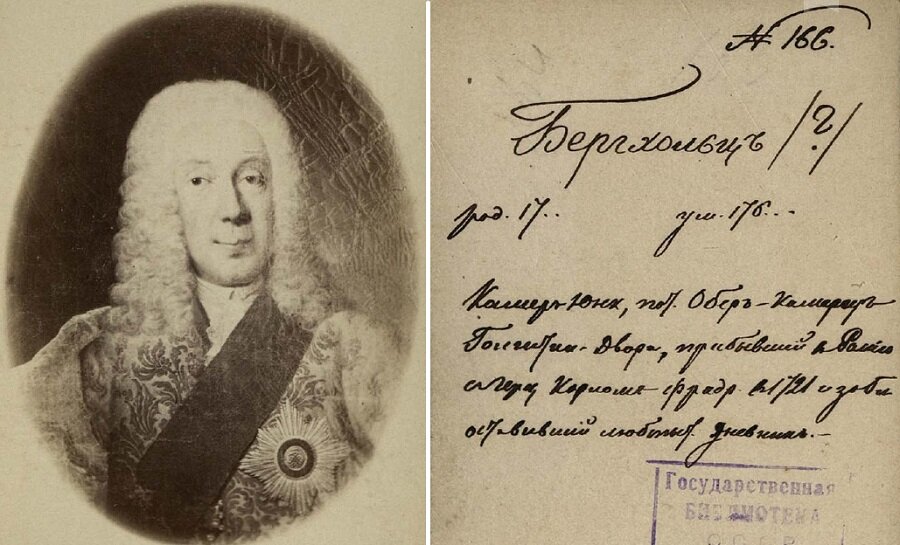 № 166.
Бергхольцъ /?/
род. 17.. ум. 176...
Камеръ-Юнк, пот. Оберъ-Камергеръ
Голштин. Двора, прибывшій в Россію
с герц Карломъ Фридр. в 1721 и
оставившій любпыт. дневникъ.–
Государственная
БИБЛИОТЕКА
СССР